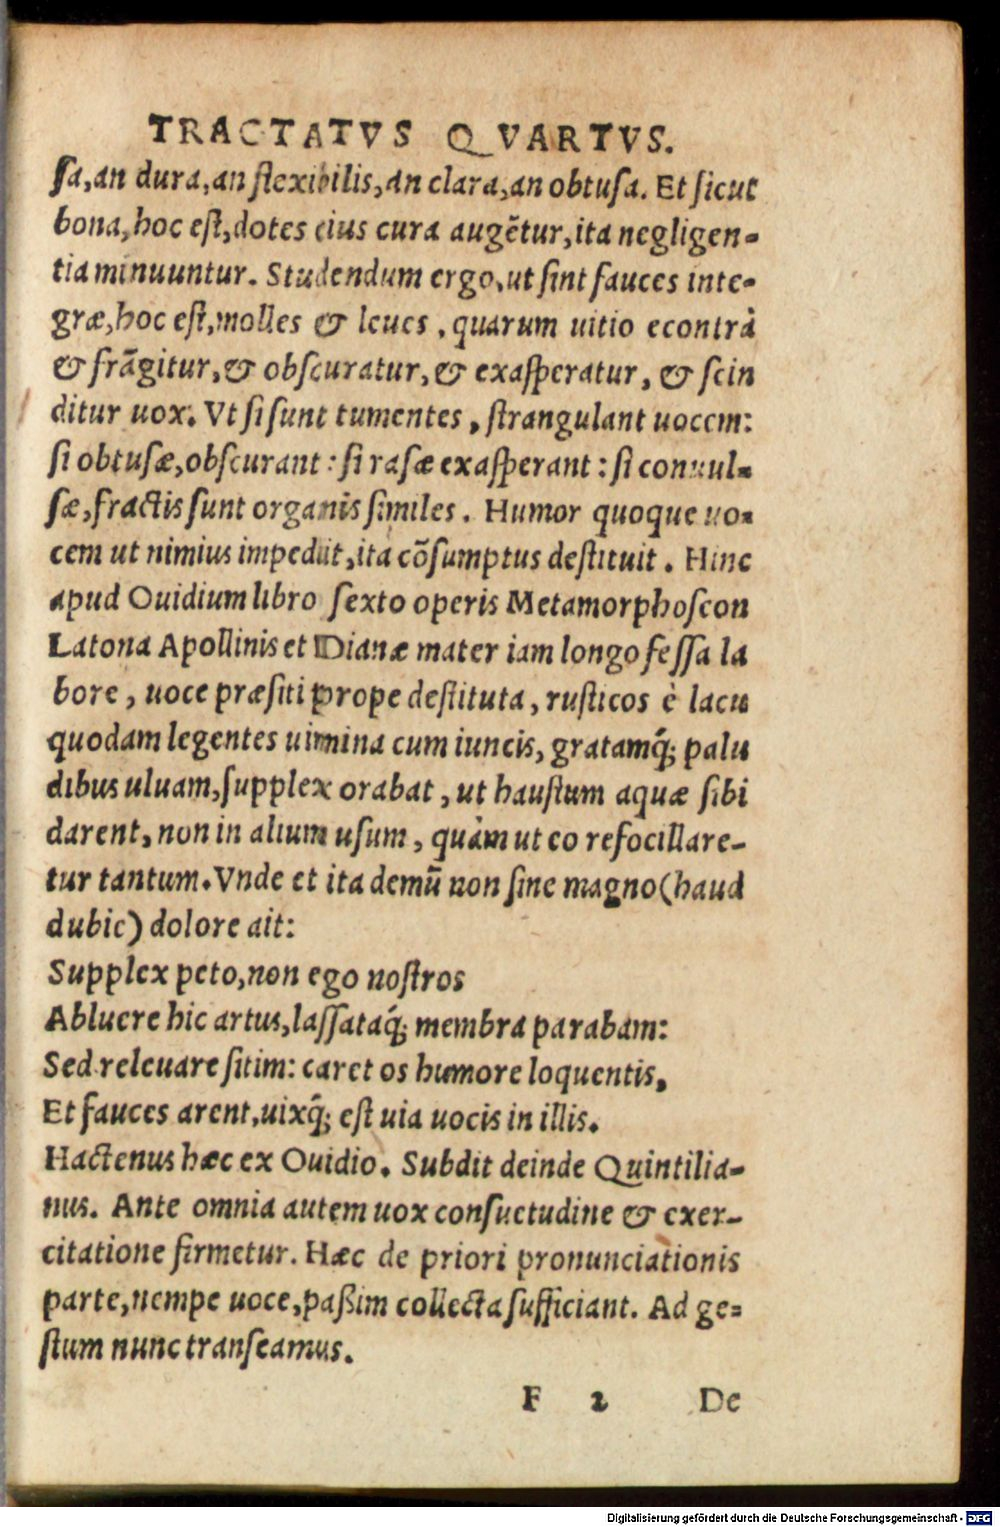 TRACTATVS QVARTVS.
ſa, an dura, an flexibilis, an clara, an obtuſa. Et ſicut
bona, hoc eſt, dotes eius cura augētur, ita negligen-
tia minuuntur. Studendum ergo, ut ſint fauces inte-
græ, hoc eſt, molles & leues, quarum uitio econtrà
& frāgitur, & obſcuratur, & exaſperatur, & ſcin
ditur uox. Vt ſi ſunt tumentes, ſtrangulant uocem:
ſi obtuſæ, obſcurant: ſi raſæ exaſperant: ſi conuul-
ſæ, fractis ſunt organis ſimiles. Humor quoque uo-
cem ut nimius impedit, ita cōſumptus deſtituit. Hinc
apud Ouidium libro ſexto operis Metamorphoſeon
Latona Apollinis et Dianæ mater iam longo feſſa la
bore, uoce præ ſiti prope deſtituta, ruſticos è lacu
quodam legentes uimina cum iuncis, gratamq́; palu
dibus uluam, ſupplex orabat, ut hauſtum aquæ ſibi
darent, non in alium uſum, quàm ut eo refocillare-
tur tantum. Vnde et ita demū non ſine magno (haud
dubie) dolore ait:
Supplex peto, non ego noſtros
Abluere hic artus, laſſataq́; membra parabam:
Sed releuare ſitim: caret os humore loquentis,
Et fauces arent, uixq́; eſt uia uocis in illis.
Hactenus hæc ex Ouidio. Subdit deinde Quintilia-
nus. Ante omnia autem uox conſuetudine & exer-
citatione firmetur. Hæc de priori pronunciationis
parte, nempe uoce, paßim collecta ſufficiant. Ad ge-
ſtum nunc tranſeamus.
F 2 De
Digitalisierung gefördert durch die Deutsche Forschungsgemeinschaft - DFG